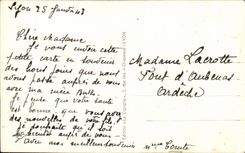 Lyon 25 Janvier 43
Chère Madame
Je vous envoie cette
petite carte en souvenir
des bons jours que nous
avons passé auprès de vous
avec ma mère
Je pense que votre santé
est bonne que vous avez
des nouvelles de votre fils
Je souhaite qu'il soit
auprès de vous
avec mes meilleurs souvenirs
Madame Lacrotte
Pont d'Aubenas
Ardèche